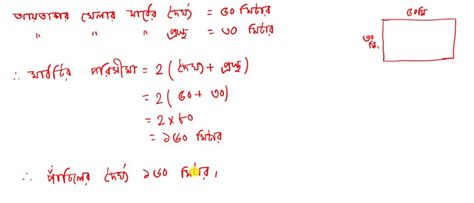 আয়তাকার খেলার মাঠের দৈর্ঘ্য = ৫০ মিটার
" " " প্রস্থ = ৩০ মিটার
৫০মি
৩০
মি.
∴ মাঠটির পরিসীমা = 2 (দৈর্ঘ্য + প্রস্থ)
= 2 ( ৫০ + ৩০ )
= 2 × ৮০
= ১৬০ মিটার
∴ পাঁচিলের দৈর্ঘ্য ১৬০ মিটার।